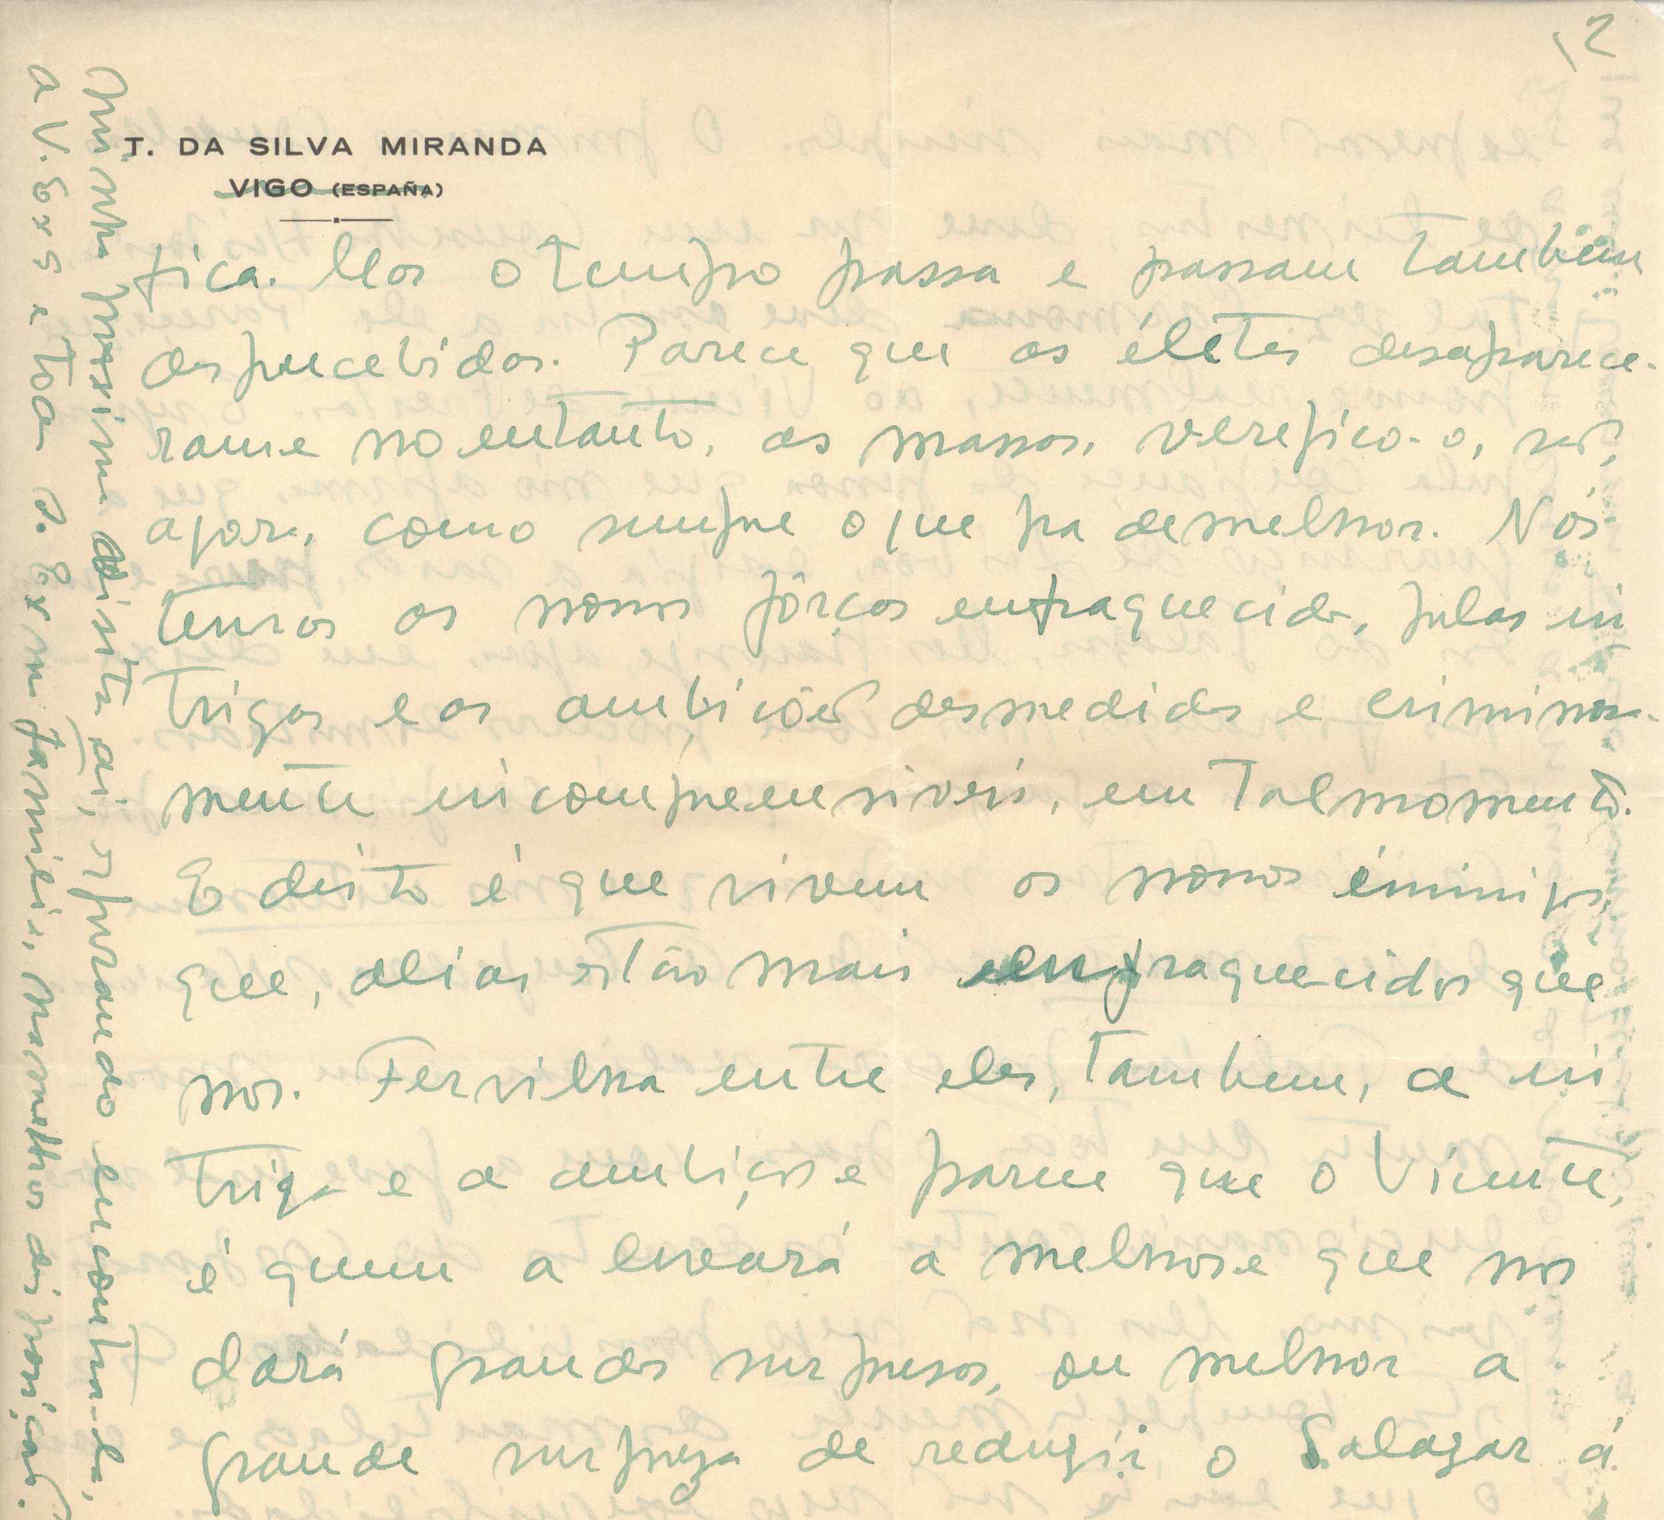 12
T. DA SILVA MIRANDA
VIGO (ESPAÑA)
fica. Mas o tempo passa e passam tambem
despercebidos. Parece que as élites desaparece-
ram e no entanto, as massas, verefico-o, são,
agora, como sempre o que ha de melhor. Nós
temos as nossas fôrças enfraquecidas, pelas in
trigas e as ambições desmedidas e criminosa-
mente incompreensiveis, em tal momento.
E disto é que vivem os nossos inimigos,
que, alias estão mais enfraquecidos que
nos. Fervilha entre eles, tambem, a in
triga e a ambição e parece que o Vicente,
é quem a levará a melhor e que nos
dará grandes surpresas, ou melhor a
grande surpreza de reduzir o Salazar á
minha proxima visita ai, esperando encontra-la,
a V. Exª e toda S. Exma familia, na melhor disposição.